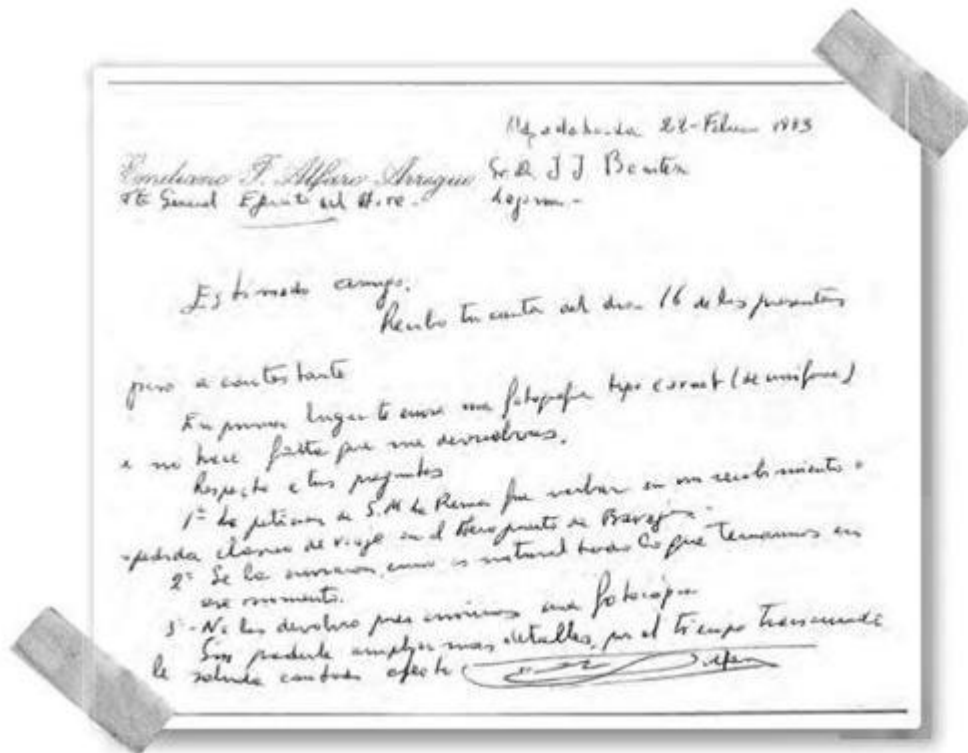 22-Febrero 1993
Emiliano F. Alfaro Arregui Sr. D. J J Benitez
Tte General Ejército del Aire.
Estimado amigo:
Recibo tu carta del dia 16 de los presentes
paso a contestarte
En primer lugar te envio una fotografia tipo carnet (de uniforme)
no hace falta que me devuelvas.
Respecto a tus preguntas
1º La peticion de S.M la Reina fue verbal en un recibimiento o
despedida clasico de viaje en el Aeropuerto de Barajas.
2º Se la enviaron, como es natural todo lo que teniamos en
ese momento.
3º-No los devolvio pues envimos una fotocopia
Sin poderte ampliar mas detalles, por el tiempo transcurrido
le saluda con todo afecto